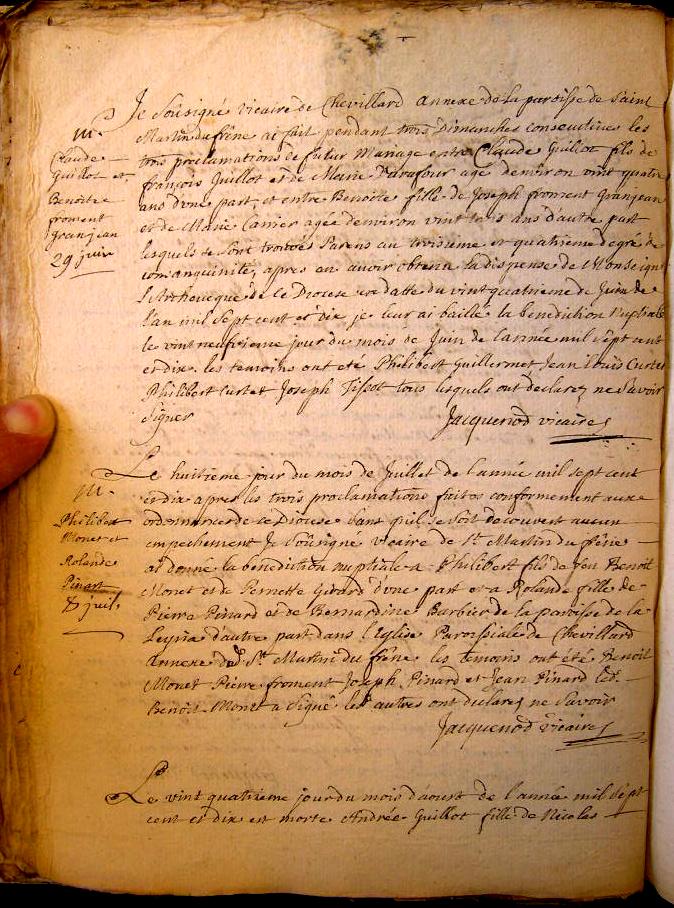 Je soûsigné vicaire de Chevillard annexe de la paroisse de Saint
Martin du frêne ai fait pendant trois Dimanches consecutives les
trois proclamations de futur Mariage entre Claude Guillot fils de
françois Guillot et de Marie agé denviron vint quatre
ans d'une part et entre Benoite fille de Joseph froment Granjean
et de Marie Carrier agée denviron vint trois ans d'autre part
lesquels se sont trouvés Parens au troisieme et quatrieme degré de
consanguinité, apres en avoir obtenu la dispense de Monseign
l'Archeveque de ce Diocese en datte du vint quatrieme de Juin de
l'an mil sept cent et dix je leur ai baillé la benediction Nuptiale
le vint neufvieme jour du mois de Juin de l'année mil sept cent
et dix. les temoins ont eté Philibert Guillermet Jean Louïs Curtet
Philibert Curtet Joseph Tissot tous lesquels ont declarez ne savoir
signer
Jacquenod vicaire
M.
Claude
Guillot et
Benoitte
froment
granjean
29 juin
Le huitieme jour du mois de Juillet de l'année mil sept cent
et dix apres les trois proclamations faites conformement aux
ordonnances de ce Diocese sans qu'il se soit decouvert aucun
empechement Je soûsigné vicaire de St. Martin du frêne
ai donné la benediction nuptiale a Philibert fils de feu Benoit
Monet et de Pernette Girard d'une part et a Rolande fille de
Pierre Pinard et de Bernardine Barbier de la paroisse de la
Leyria d'autre part dans l'Eglise Paroissiale de Chevillard
annexe dud. St. Martin du frêne les temoins ont été Benoit
Monet Pierre froment Joseph Pinard et Jean Pinard led.
Benoit Monet a signé les autres ont declarez ne savoir
Jacquenod vicaire
M.
Philibert
Monet et
Rolande
Pinart
8 juil.
Le vint quatrieme jour du mois d'aoust de l'année mil sept
cent et dix est morte Andrée Guillot fille de Nicolas